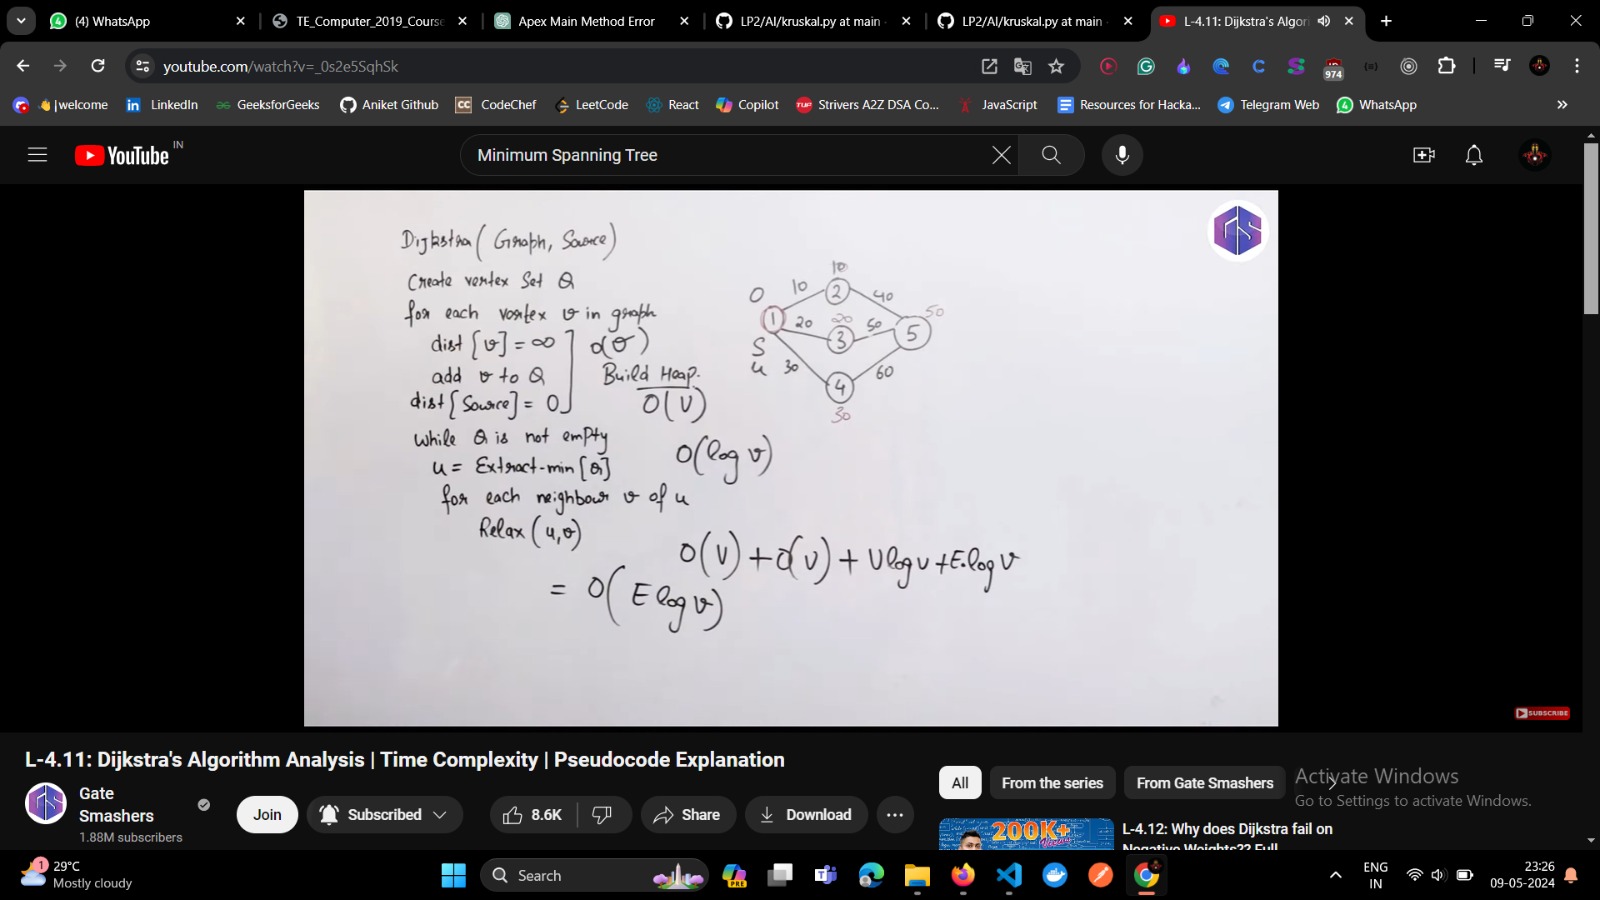 (4) WhatsApp
TE_Computer_2019_Course
Apex Main Method Error
LP2/AI/kruskal.py at main
LP2/AI/kruskal.py at main
L-4.11: Dijkstra's Algori
youtube.com/watch?v=_0s2e5SqhSk
974
|welcome
LinkedIn
GeeksforGeeks
Aniket Github
CC CodeChef
LeetCode
React
Copilot
TUF Strivers A2Z DSA Co...
JavaScript
Resources for Hacka...
Telegram Web
WhatsApp
YouTube IN
Minimum Spanning Tree
Dijkstra(Graph, Source)
Create vertex Set Q
for each vertex v in graph
dist[v] = ∞
add v to Q
dist[Source] = 0
O(V)
Build Heap.
O(V)
while Q is not empty
u = Extract-min[Q]
O(log v)
for each neighbour v of u
Relax(u,v)
O(V) + O(V) + V log v + E.log V
= O(E log v)
10
0 10 2 40
1 20 20 3 50 5 50
S
u 30 4 60
30
SUBSCRIBE
L-4.11: Dijkstra's Algorithm Analysis | Time Complexity | Pseudocode Explanation
Gate
Smashers
1.88M subscribers
Join
Subscribed
8.6K
Share
Download
All
From the series
From Gate Smashers
Activate Windows
Go to Settings to activate Windows.
200K+
L-4.12: Why does Dijkstra fail on
Negative Weights?? Full
1
29°C
Mostly cloudy
Search
PRE
ENG
IN
23:26
09-05-2024